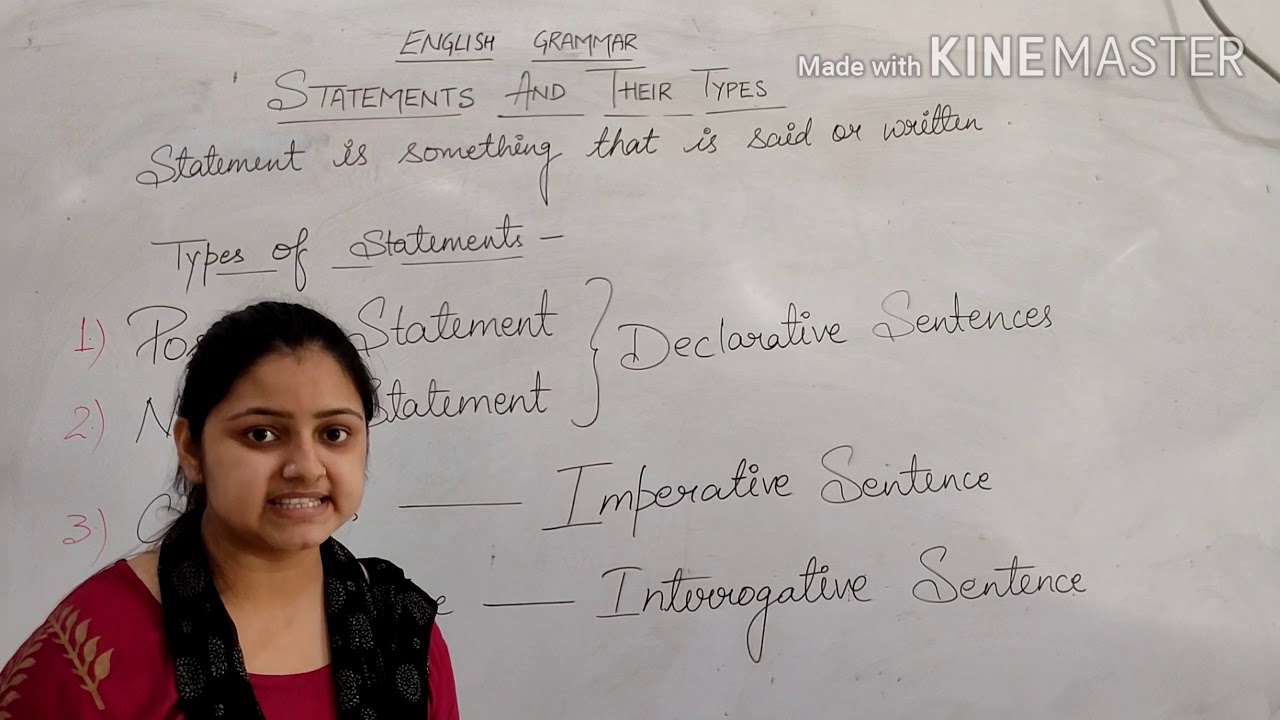 ENGLISH GRAMMAR
Made with KINEMASTER
STATEMENTS AND THEIR TYPES
Statement is something that is said or written.
Types of Statements –
1.) Statement } Declarative Sentences
2.) Statement
3.) — Imperative Sentence
— Interrogative Sentence